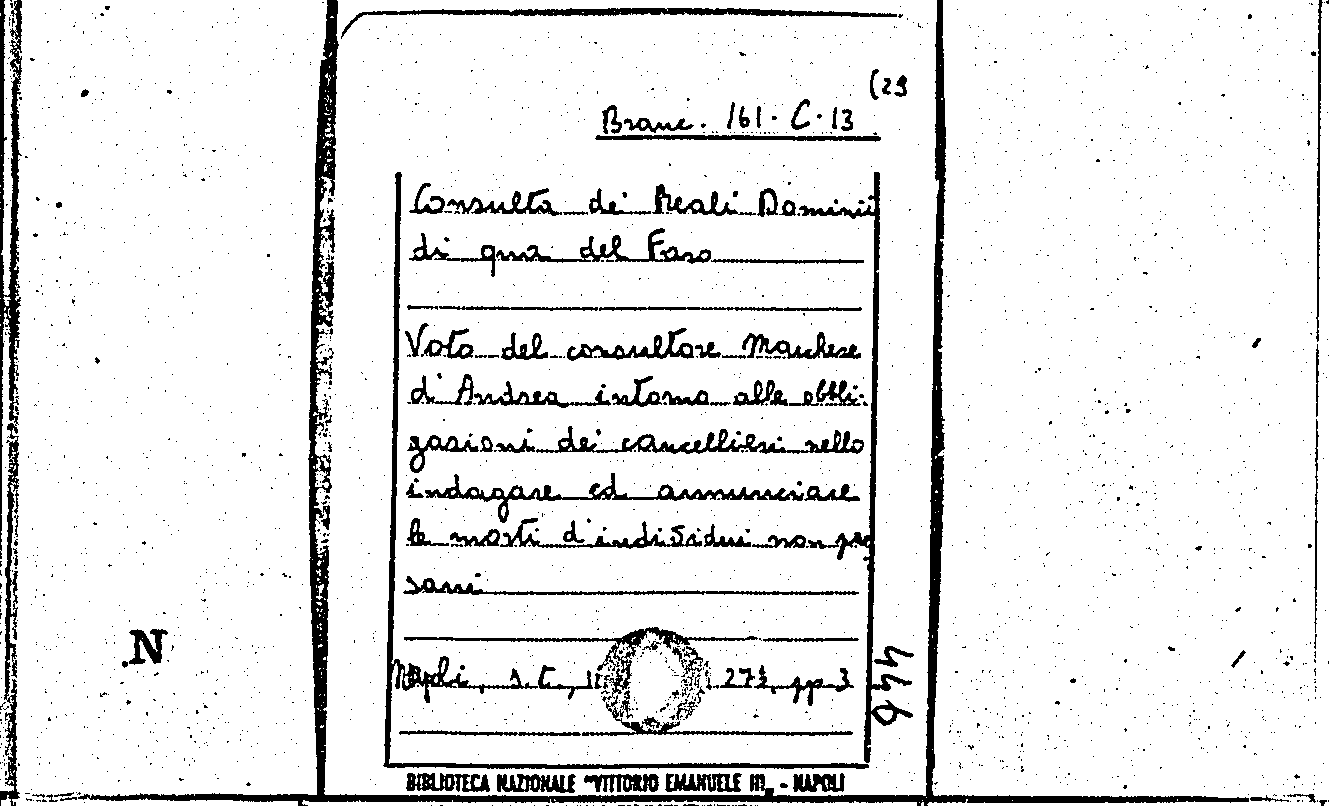 (29
Branc. 161. C. 13
Consulta dei Reali Dominii
di qua del Faro
Voto del consultore Marchese
d'Andrea intorno alle obbli-
gazioni dei cancellieri nello
indagare ed annunciare
le morti d'individui non
sani
Napoli, s.t., 27½, pp 3
446
N
BIBLIOTECA NAZIONALE "VITTORIO EMANUELE III„ - NAPOLI